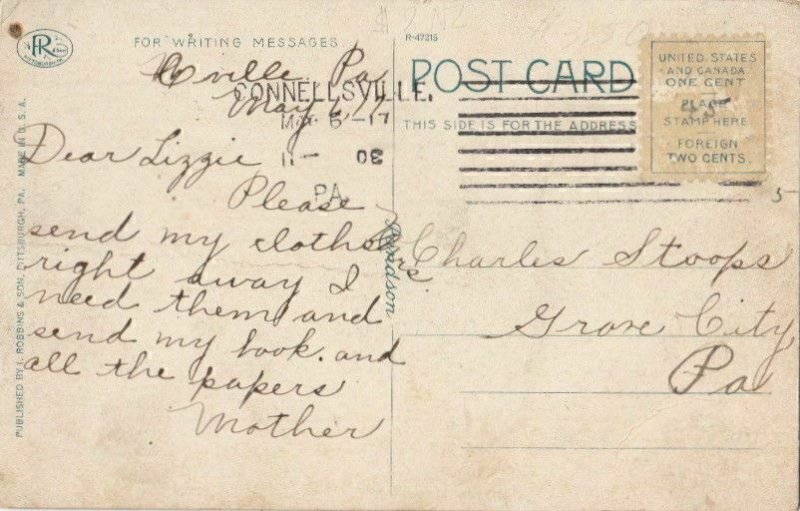 R
PITTSBURGH, PA.
FOR WRITING MESSAGES
R-47215
C'ville Pa
May 6/17
CONNELLSVILLE,
MAY 6 - 17
11 -
PA.
POST CARD
THIS SIDE IS FOR THE ADDRESS
UNITED STATES
AND CANADA
ONE CENT
PLACE
STAMP HERE
FOREIGN
TWO CENTS.
Dear Lizzie
Please
send my clothes
right away I
need them and
send my book. and
all the papers
Mother
Davidson
Mrs. Charles Stoops
Grove City
Pa
5
PUBLISHED BY I. ROBBINS & SON, PITTSBURGH, PA. MADE IN U. S. A.